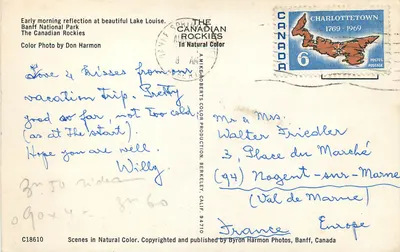 Early morning reflection at beautiful Lake Louise.
Banff National Park
The Canadian Rockies
Color Photo by Don Harmon
THE
CANADIAN
ROCKIES
In Natural Color
CHARLOTTETOWN
1769-1969
CANADA
6
POSTES
POSTAGE
Love & Kisses from our
vacation trip. Pretty
good so far, not too cold
(as at the start).
Hope you are well.
Willy
A MIKE ROBERTS COLOR PRODUCTION BERKELEY, CALIF. 94710
Mr & Mrs
Walter Friedler
3, Place du Marché
(94) Nogent-sur-Marne
(Val de Marne)
France Europe
C18610
Scenes in Natural Color. Copyrighted and published by Byron Harmon Photos, Banff, Canada